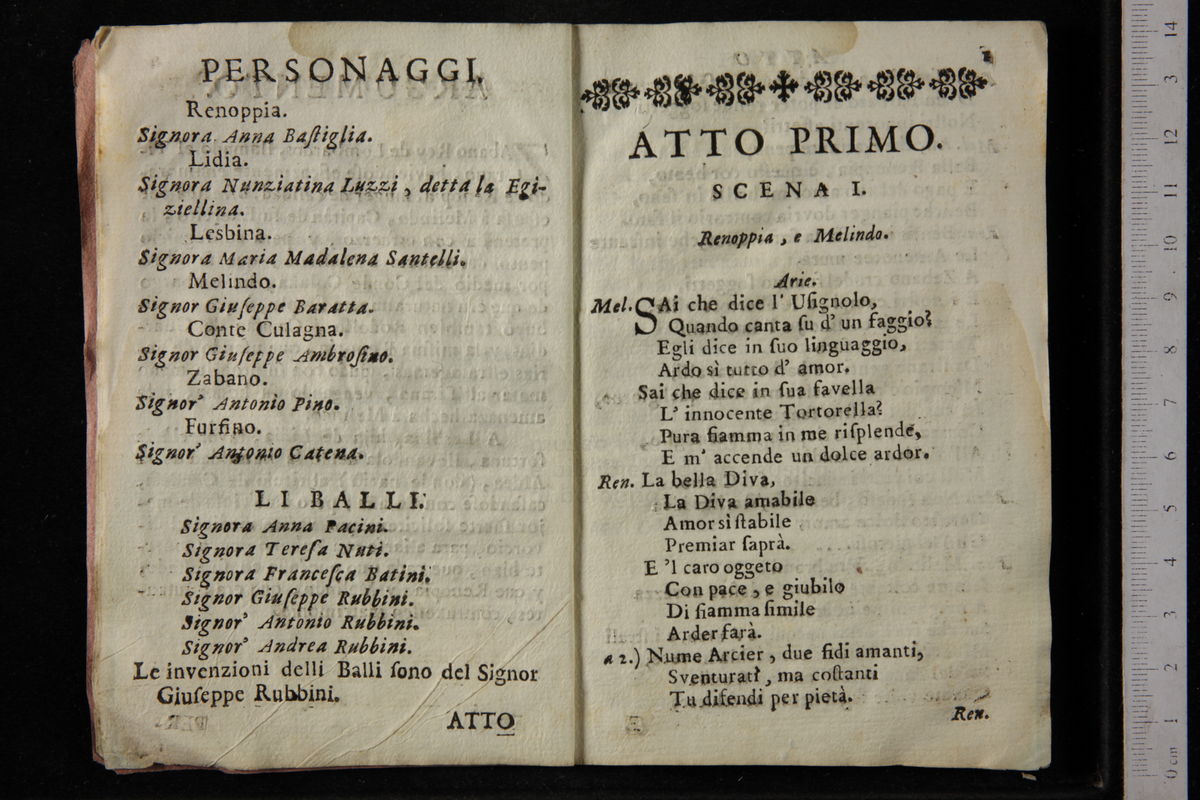 PERSONAGGI.
Renoppia.
Signora Anna Baſtiglia.
Lidia.
Signora Nunziatina Luzzi, detta la Egi-
ziellina.
Lesbina.
Signora Maria Madalena Santelli.
Melindo.
Signor Giuſeppe Baratta.
Conte Culagna.
Signor Giuſeppe Ambroſino.
Zabano.
Signor' Antonio Pino.
Furfino.
Signor' Antonio Catena.
LI BALLI.
Signora Anna Pacini.
Signora Tereſa Nuti.
Signora Franceſca Batini.
Signor Giuſeppe Rubbini.
Signor' Antonio Rubbini.
Signor' Andrea Rubbini.
Le invenzioni delli Balli ſono del Signor
Giuſeppe Rubbini.
ATTO
ATTO PRIMO.
SCENA I.
Renoppia, e Melindo.
Arie.
Mel. SAi che dice l' Uſignolo,
Quando canta ſu d' un faggio?
Egli dice in ſuo linguaggio,
Ardo sì tutto d' amor.
Sai che dice in ſua favella
L' innocente Tortorella?
Pura fiamma in me riſplende,
E m' accende un dolce ardor.
Ren. La bella Diva,
La Diva amabile
Amor sì ſtabile
Premiar ſaprà.
E 'l caro oggeto
Con pace, e giubilo
Di fiamma ſimile
Arder farà.
a 2.) Nume Arcier, due fidi amanti,
Sventurati, ma coſtanti
Tu difendi per pietà.
Ren.
0 cm 1 2 3 4 5 6 7 8 9 10 11 12 3 14